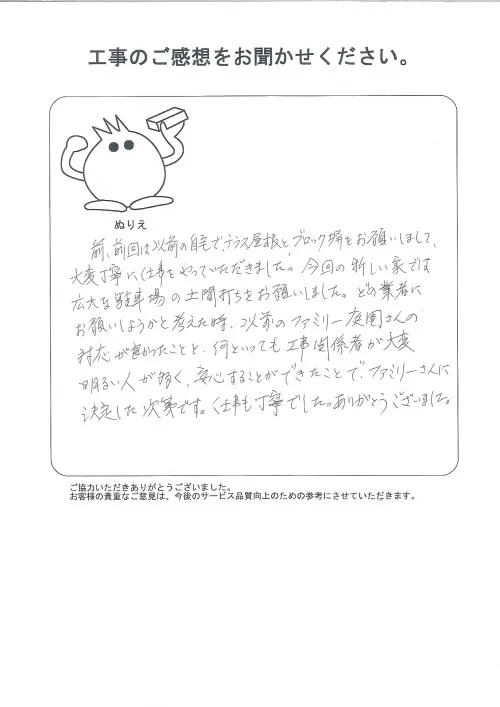 工事のご感想をお聞かせください。
ぬりえ
前、前回は以前の自宅で、テラス屋根とブロック塀をお願いしまして、
大変丁寧に仕事をやっていただきました。今回の新しい家では
広大な駐車場の土間打ちをお願いしました。どの業者に
お願いしようかと考えた時、以前のファミリー庭園さんの
対応が良かったことと、何といっても工事関係者が大変
明るい人が多く、安心することができたことで、ファミリーさんに
決定した次第です。仕事も丁寧でした。ありがとうございました。
ご協力いただきありがとうございました。
お客様の貴重なご意見は、今後のサービス品質向上のための参考にさせていただきます。